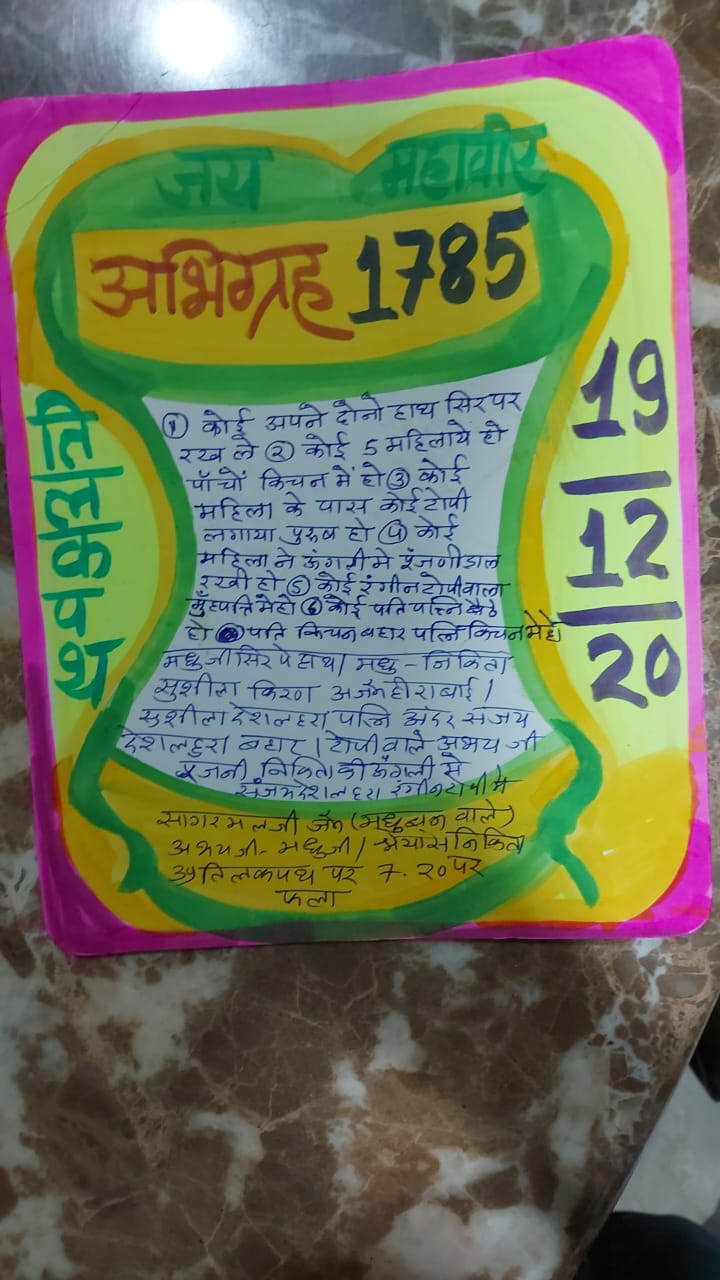 जय महावीर
अभिग्रह 1785
① कोई अपने दोनो हाथ सिर पर
रख ले ② कोई 5 महिलाये हो
पाँचों किचन में हो ③ कोई
महिला के पास कोई टोपी
लगाया पुरुष हो ④ कोई
महिला ने ऊंगली मे इंजणी डाल
रखी हो ⑤ कोई रंगीन टोपी वाला
मुँहपति मे हो ⑥ कोई पति पत्नि खड़े
हो पति किचन बहार पत्नि किचन मे हो
मधु जी सिर पे हाथ। मधु - निकिता
सुशीला किरण अजैन हीराबाई।
सुशीला देशलहरा पत्नि अंदर संजय
देशलहरा बहार। टोपी वाले अभय जी
इंजनी निकिता की ऊँगली से
संजय देशलहरा रंगीन टोपी मे
सागरमलजी जैन (मधुबन वाले)
अभय जी - मधु जी। श्रेयांस निकिता
39 तिलकपथ पर 7.20 पर
फला
तिलकपथ
19
12
20